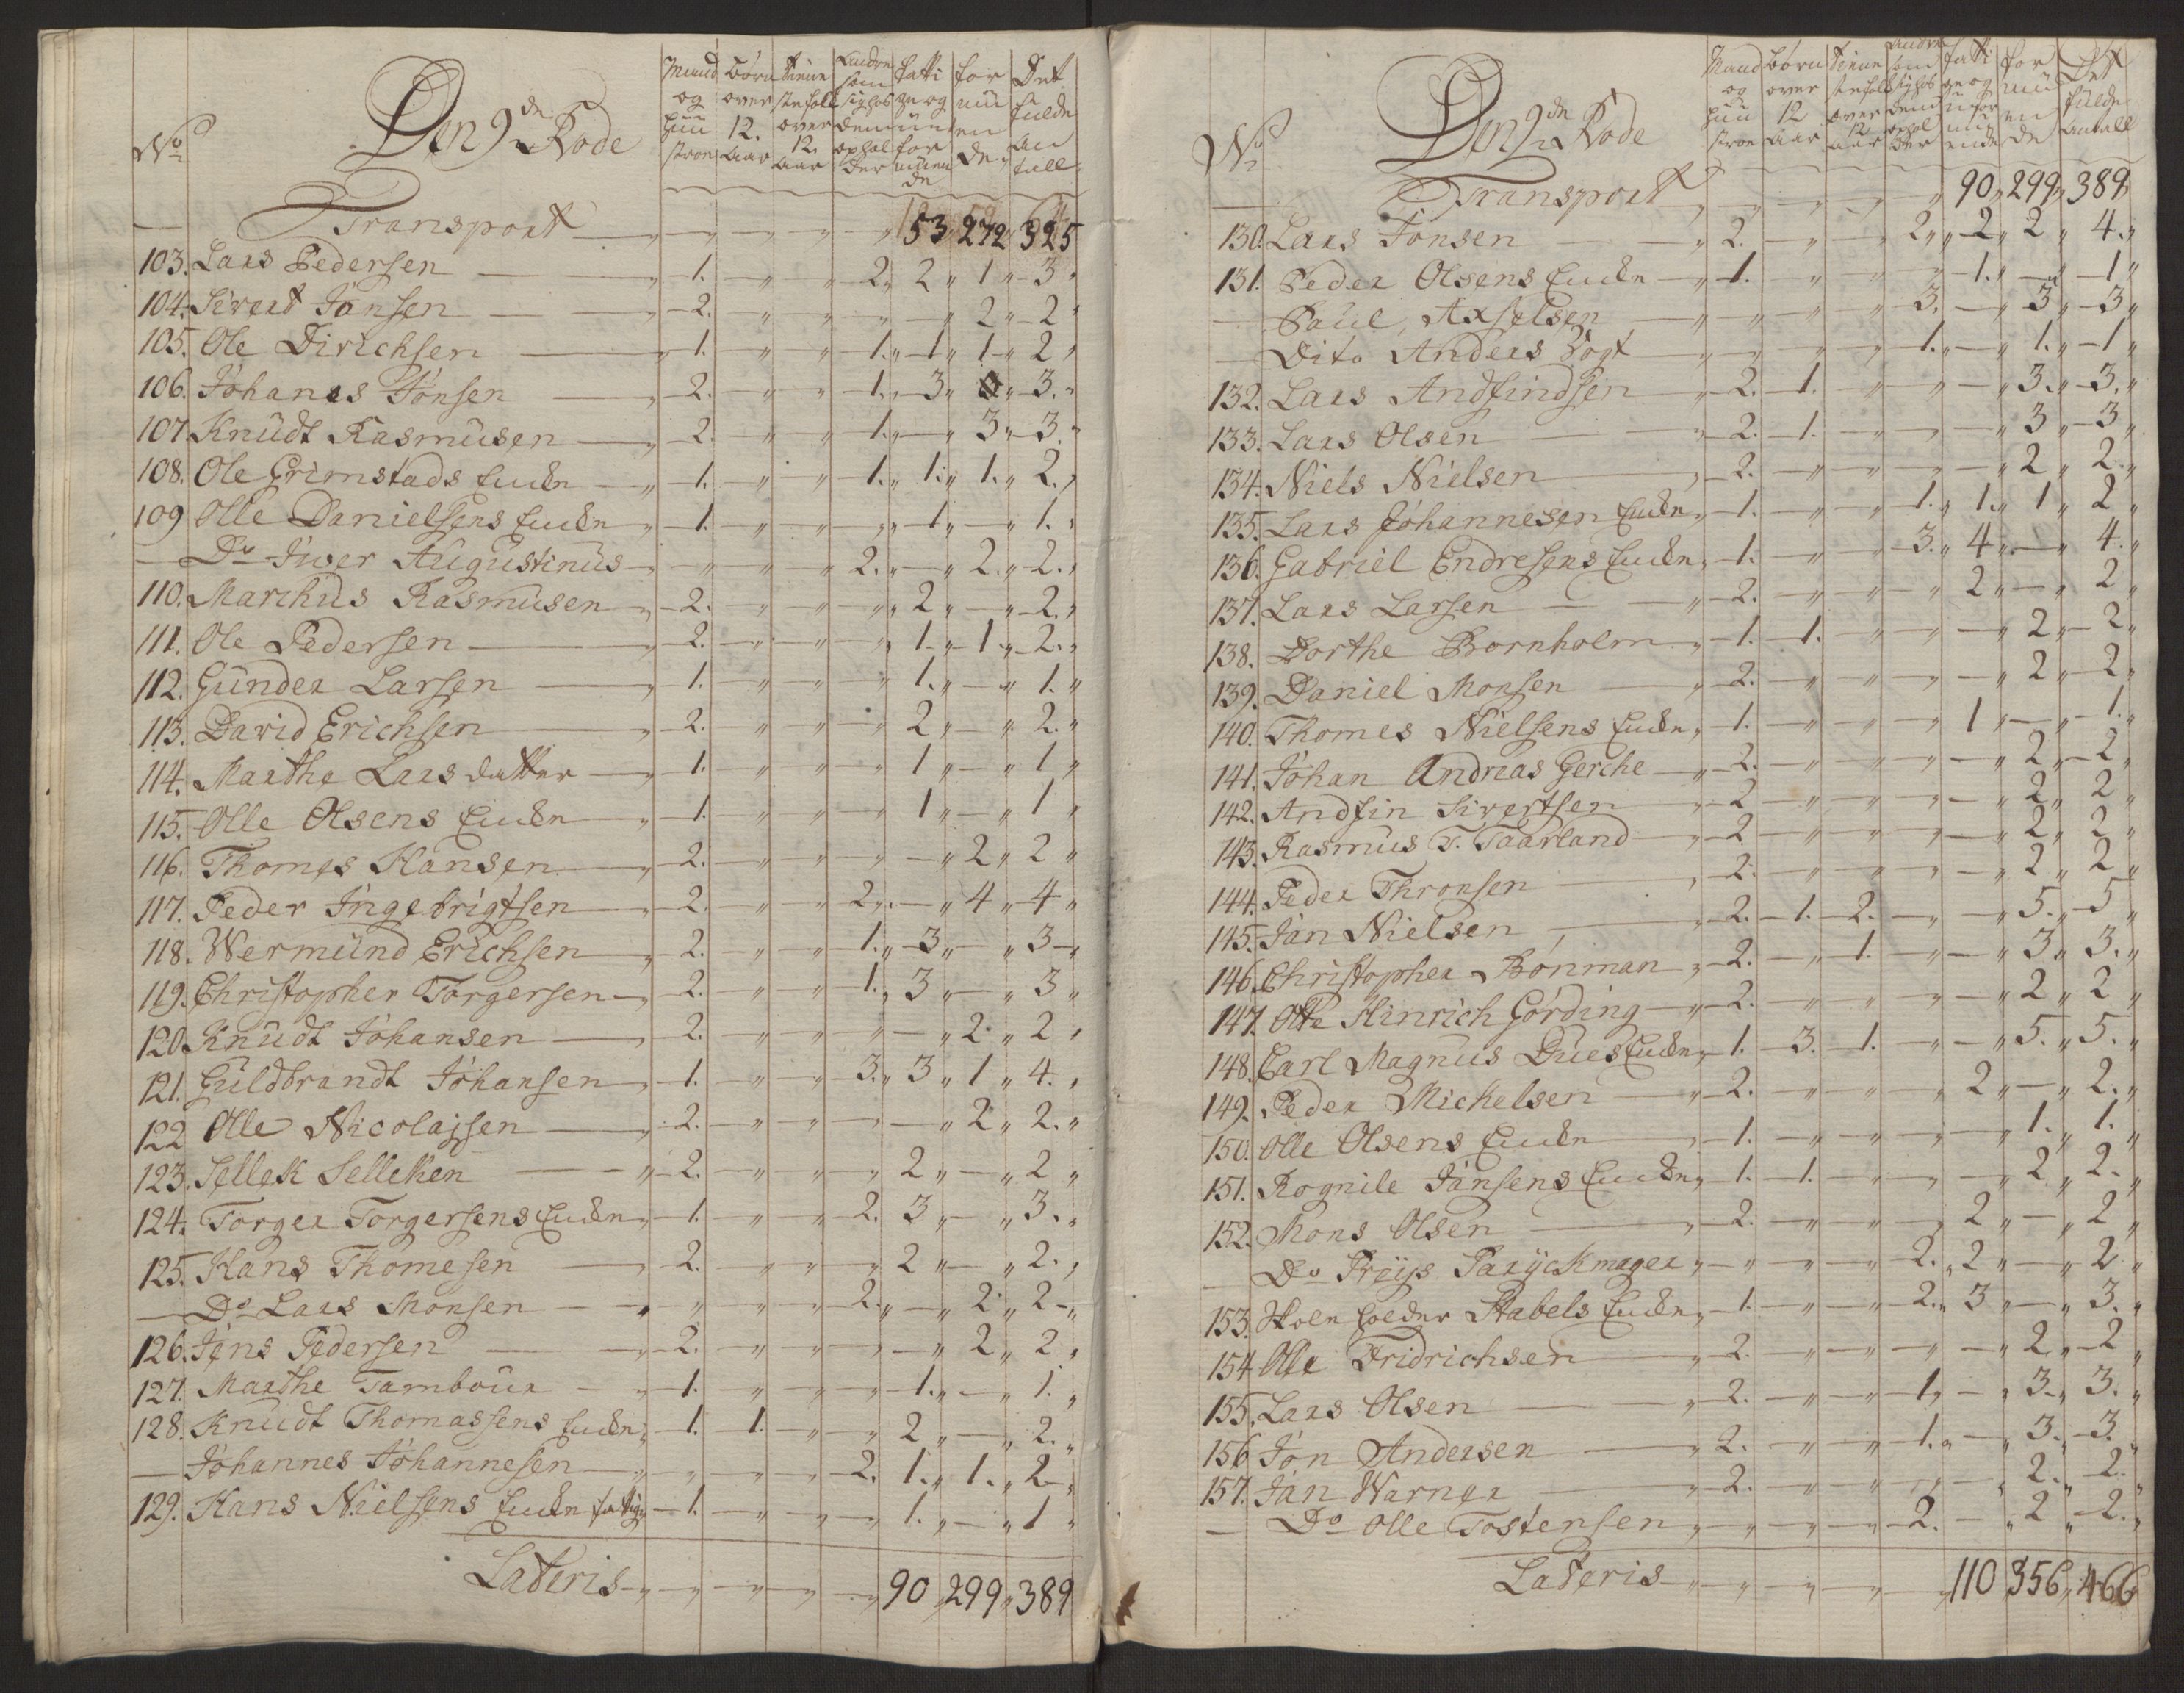 No
Den 9de Rode
Mand og Huustroe
Børn over 12. Aar
Tieniste folk over 12. Aar
Andre som sig hos dem ophol der
fatti ge og uun for müen de
for mü en de
Det fulde An tall
— Transport — „ — „ — „ — „ — „ 53 „ 272 „ 325
103. Lars Pedersen — „ 1. — „ — „ 2 „ 2 „ 1 „ 3 „
104. Sivert Jansen — „ 2. „ „ „ — „ 2 „ 2 „
105. Ole Dirichsen — „ 1. „ „ 1. „ 1 „ 1 „ 2 „
106. Johanes Jonsen — „ 2. — „ „ 1. „ 3 „ 0 „ 3. „
107. Knudt Rasmusen — „ 2. „ „ 1. „ — „ 3 „ 3. „
108. Ole Grimstads Enden — „ 1. — „ — „ 1. „ 1. „ 1. „ 2. „
109 Olle Danielsens Enden „ 1. „ „ „ 1 „ — „ 1. „
— Do Iwer Augustinus — „ „ „ 2. „ — „ 2. „ 2. „
110. Marchus Rasmusen „ 2. „ „ „ 2 „ — „ 2. „
111. Ole Pedersen — „ 2. — „ — „ — „ 1. „ 1. „ 2. „
112. Gunder Larsen — „ 1. — „ — „ — „ 1. „ — „ 1. „
113. David Erichsen — „ 2. „ „ — „ 2 „ — „ 2. „
114. Marthe Lars datter — „ 1. „ „ — „ 1 „ — „ 1 „
115. Olle Olsens Enden — „ 1. „ „ — „ 1 „ — „ 1 „
116. Thomes Hansen — „ 2. — „ — „ — „ — „ 2 „ 2 „
117. Peder Ingebrigtsen — „ 2. — „ — „ 2 „ — „ 4 „ 4 „
118. Wermund Erichsen — „ 2. — „ — „ 1. „ 3 „ — „ 3 „
119. Christopher Torgersen — „ 2. — „ — „ 1. „ 3 „ — „ 3 „
120. Knudt Johansen — „ 2. — „ — „ — „ — „ 2. „ 2 „
121. Guldbrandt Johansen — „ 1. — „ — „ 3. „ 3 „ 1 „ 4. „
122 Olle Nicolajsen — „ 2. — „ — „ — „ — „ 2 „ 2. „
123. Sellek Selleken — „ 2. — „ — „ — „ 2 „ — „ 2 „
124. Torger Torgersens Enden „ 1. — „ — „ 2. 3 „ — „ 3. „
125. Hans Thomesen — „ 2. — „ — „ — „ 2 „ — „ 2. „
— Do Lars Monsen — „ „ „ „ 2. „ — „ 2. „ 2 „
126. Jens Pedersen — „ 2. — „ — „ — „ — „ 2 „ 2 „
127. Marthe Tambour — „ 1. — „ — „ — „ 1. „ — „ 1. „
128. Knudt Thomassens Enden „ 1. 1. — „ — „ 2 „ — „ 2. „
— Johannes Johannesen — „ „ — „ — „ 2. 1. „ 1. „ 2 „
129. Hans Nielsens Enden fattig „ 1. — „ — „ — „ 1. „ — „ 1 „
Lateris — „ — „ — „ — „ — „ 90 „ 299 „ 389
No
Den 9de Rode
Mand og Huustroe
Børn over 12 Aar
Tieniste folk over 12 Aar
Andre som sig hos dem ophol der
fatti ge og u for mü ende
for mü en de
Det fulde Antall
— Transport „ — „ — „ — „ — „ 90 „ 299 „ 389
130. Lars Jonsen — „ 2. — „ — 2 „ 2 „ 2 „ 4. „
131. Peder Olsens Enden — „ 1. „ „ „ 1. „ — „ 1 „
— Paul Axselsen — „ „ „ 3. — „ 3 „ 3 „
— Dito Anders Vogt — „ „ „ 1. „ — „ 1. „ 1 „
132. Lars Andfindsen — „ 2. 1. „ „ — „ 3. „ 3. „
133. Lars Olsen — „ 2. 1. — „ — „ — „ 3 „ 3 „
134. Niels Nielsen — „ 2. — „ — „ — „ — „ 2 „ 2. „
135. Lars Johannesen Enden „ 1. — „ — „ 1. „ 1. „ 1 „ 2 „
136. Gabriel Endresens Enden „ 1. — „ — „ 3. „ 4 „ — „ 4. „
137. Lars Larsen — „ 2. — „ — „ — „ 2 „ — „ 2 „
138. Dorthe Bornholm „ 1. 1. — „ — „ — „ 2 „ 2 „
139. Daniel Monsen — „ 2. — „ — „ — „ — „ 2 „ 2 „
140. Thomes Nielsens Enden „ 1. — „ — „ — „ 1 „ — „ 1. „
141. Johan Andreas Gerche — „ 2. — „ — „ — „ — „ 2 „ 2 „
142. Andfin Sivertsen — „ 2 — „ — „ — „ — „ 2 „ 2 „
143. Rasmus T. Taarland — „ 2 — „ — „ — „ — „ 2 „ 2 „
144. Peder Thronsen — „ 2. — „ — „ — „ — „ 2 „ 2 „
145. Jan Nielsen — „ 2. 1. 2. — „ — „ 5. „ 5 „
146. Christopher Bonman „ 2. — „ 1. — „ — „ 3 „ 3. „
147. Otte Hinrich Gørding — „ 2. — „ — „ — „ — „ 2 „ 2 „
148. Carl Magnus Dues Enden „ 1. 3. 1. — „ — „ 5. „ 5. „
149. Peder Michelsen — „ 2. — „ — „ — „ 2 „ — „ 2. „
150. Olle Olsens Enden — „ 1. — „ — „ — „ — „ 1. „ 1. „
151. Rognile Jansens Enden „ 1. 1. — „ — „ — „ 2 „ 2 „
152. Mons Olsen — „ 2. — „ — „ — „ 2 „ — „ 2 „
— Do Preijs Paryckmager „ — „ — „ — „ 2. „ 2 „ — „ 2 „
153. Skole holder Stabels Enden „ 1. — „ — „ 2. „ 3 „ — „ 3. „
154 Olle Fridrichsen — „ 2. — „ — „ — „ — „ 2 „ 2 „
155. Lars Olsen — „ 2. — „ — „ 1. „ — „ 3. „ 3. „
156 Jon Andersen — „ 2. — „ — „ 1. „ — „ 3. „ 3. „
157. Jan Warner — „ 2. — „ — „ — „ — „ 2. „ 2. „
— Do Olle Tostensen „ — „ — „ — „ 2. — „ 2 „ 2. „
Lateris — „ — „ — „ — „ — „ 110 „ 356 „ 466